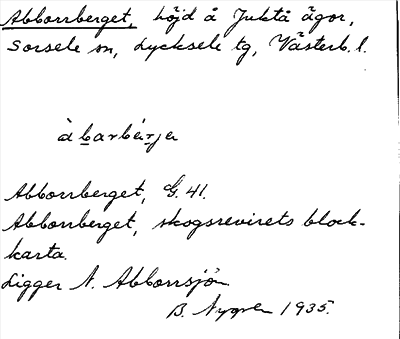 Abborrberget, höjd å Juktå ägor,
Sorsele sn, Lycksele tg, Västerb. l.
àbarbérjer
Abborrberget, G. 41.
Abborrberget, skogsrevirets block-
karta.
Ligger N. Abborrsjön
B. Nygren 1935.